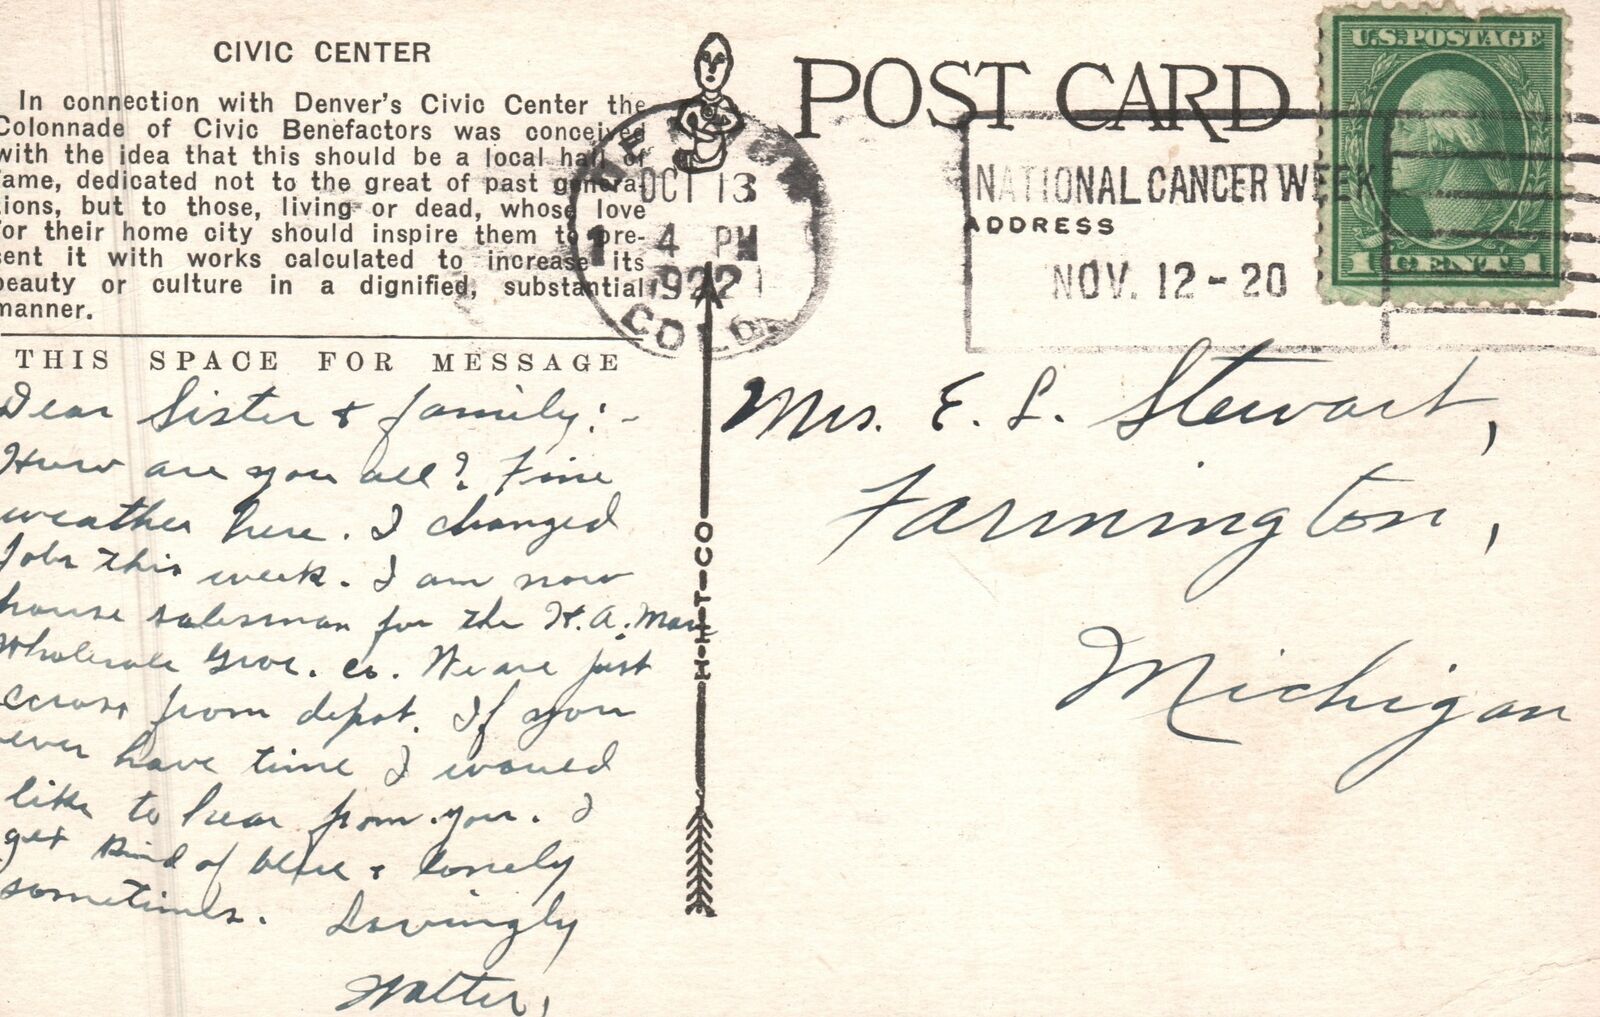 CIVIC CENTER
In connection with Denver's Civic Center the
Colonnade of Civic Benefactors was conceived
with the idea that this should be a local hall of
fame, dedicated not to the great of past genera-
tions, but to those, living or dead, whose love
for their home city should inspire them to pre-
sent it with works calculated to increase its
beauty or culture in a dignified, substantial
manner.
THIS SPACE FOR MESSAGE
Dear Sister & family:-
How are you all? Fine
weather here. I changed
Jobs this week. I am now
house salesman for the H. A. Marr
Wholesale Groc. Co. We are just
across from depot. If you
ever have time I would
like to hear from you. I
get kind of blue & lonely
sometimes. Lovingly
Walter,
H-H-T-CO
POST CARD
ADDRESS
OCT 13
4 PM
COLO.
NATIONAL CANCER WEEK
NOV. 12-20
U.S. POSTAGE
1 CENT 1
Mrs. E. L. Stewart,
Farmington,
Michigan